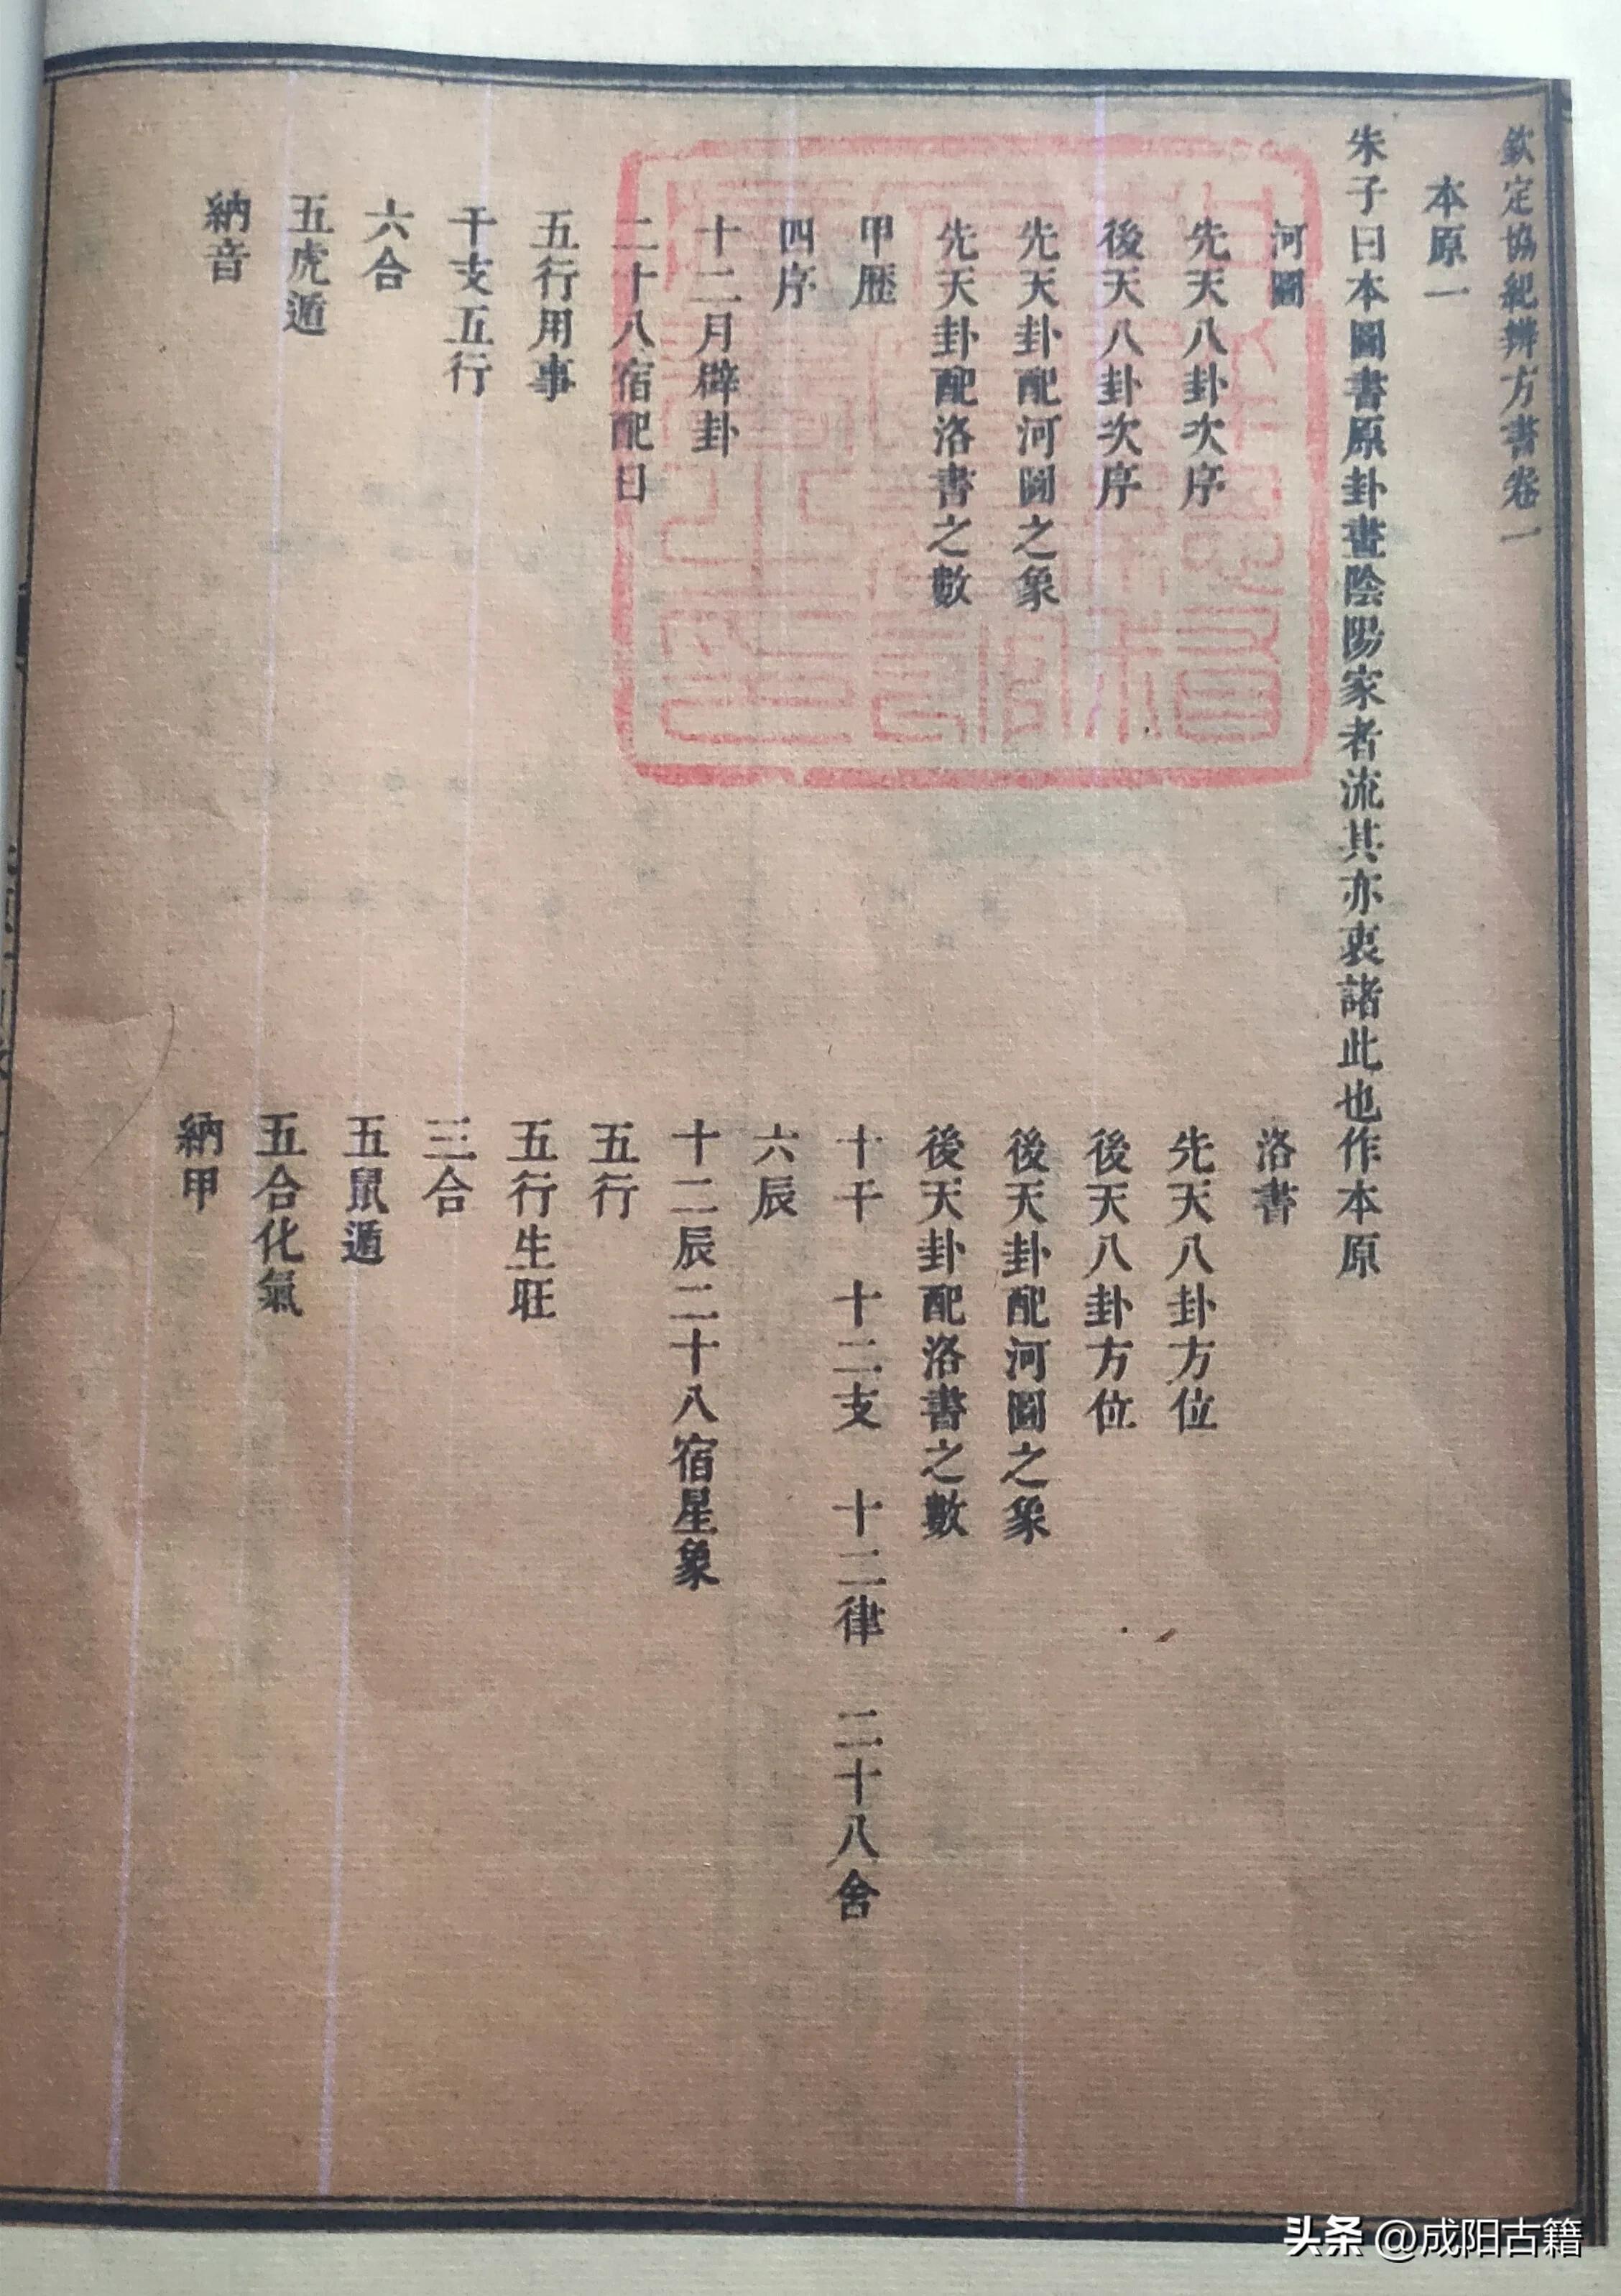 欽定協紀辨方書卷一
本原一
朱子曰本圖書原卦畫陰陽家者流其亦衷諸此也作本原
河圖
洛書
先天八卦次序
先天八卦方位
後天八卦次序
後天八卦方位
先天卦配河圖之象
後天卦配河圖之象
先天卦配洛書之數
後天卦配洛書之數
甲歷
十干 十二支 十二律 二十八舍
四序
六辰
十二月辟卦
十二辰二十八宿星象
二十八宿配日
五行
五行用事
五行生旺
干支五行
三合
六合
五鼠遁
五虎遁
五合化氣
納音
納甲
头条 @成阳古籍